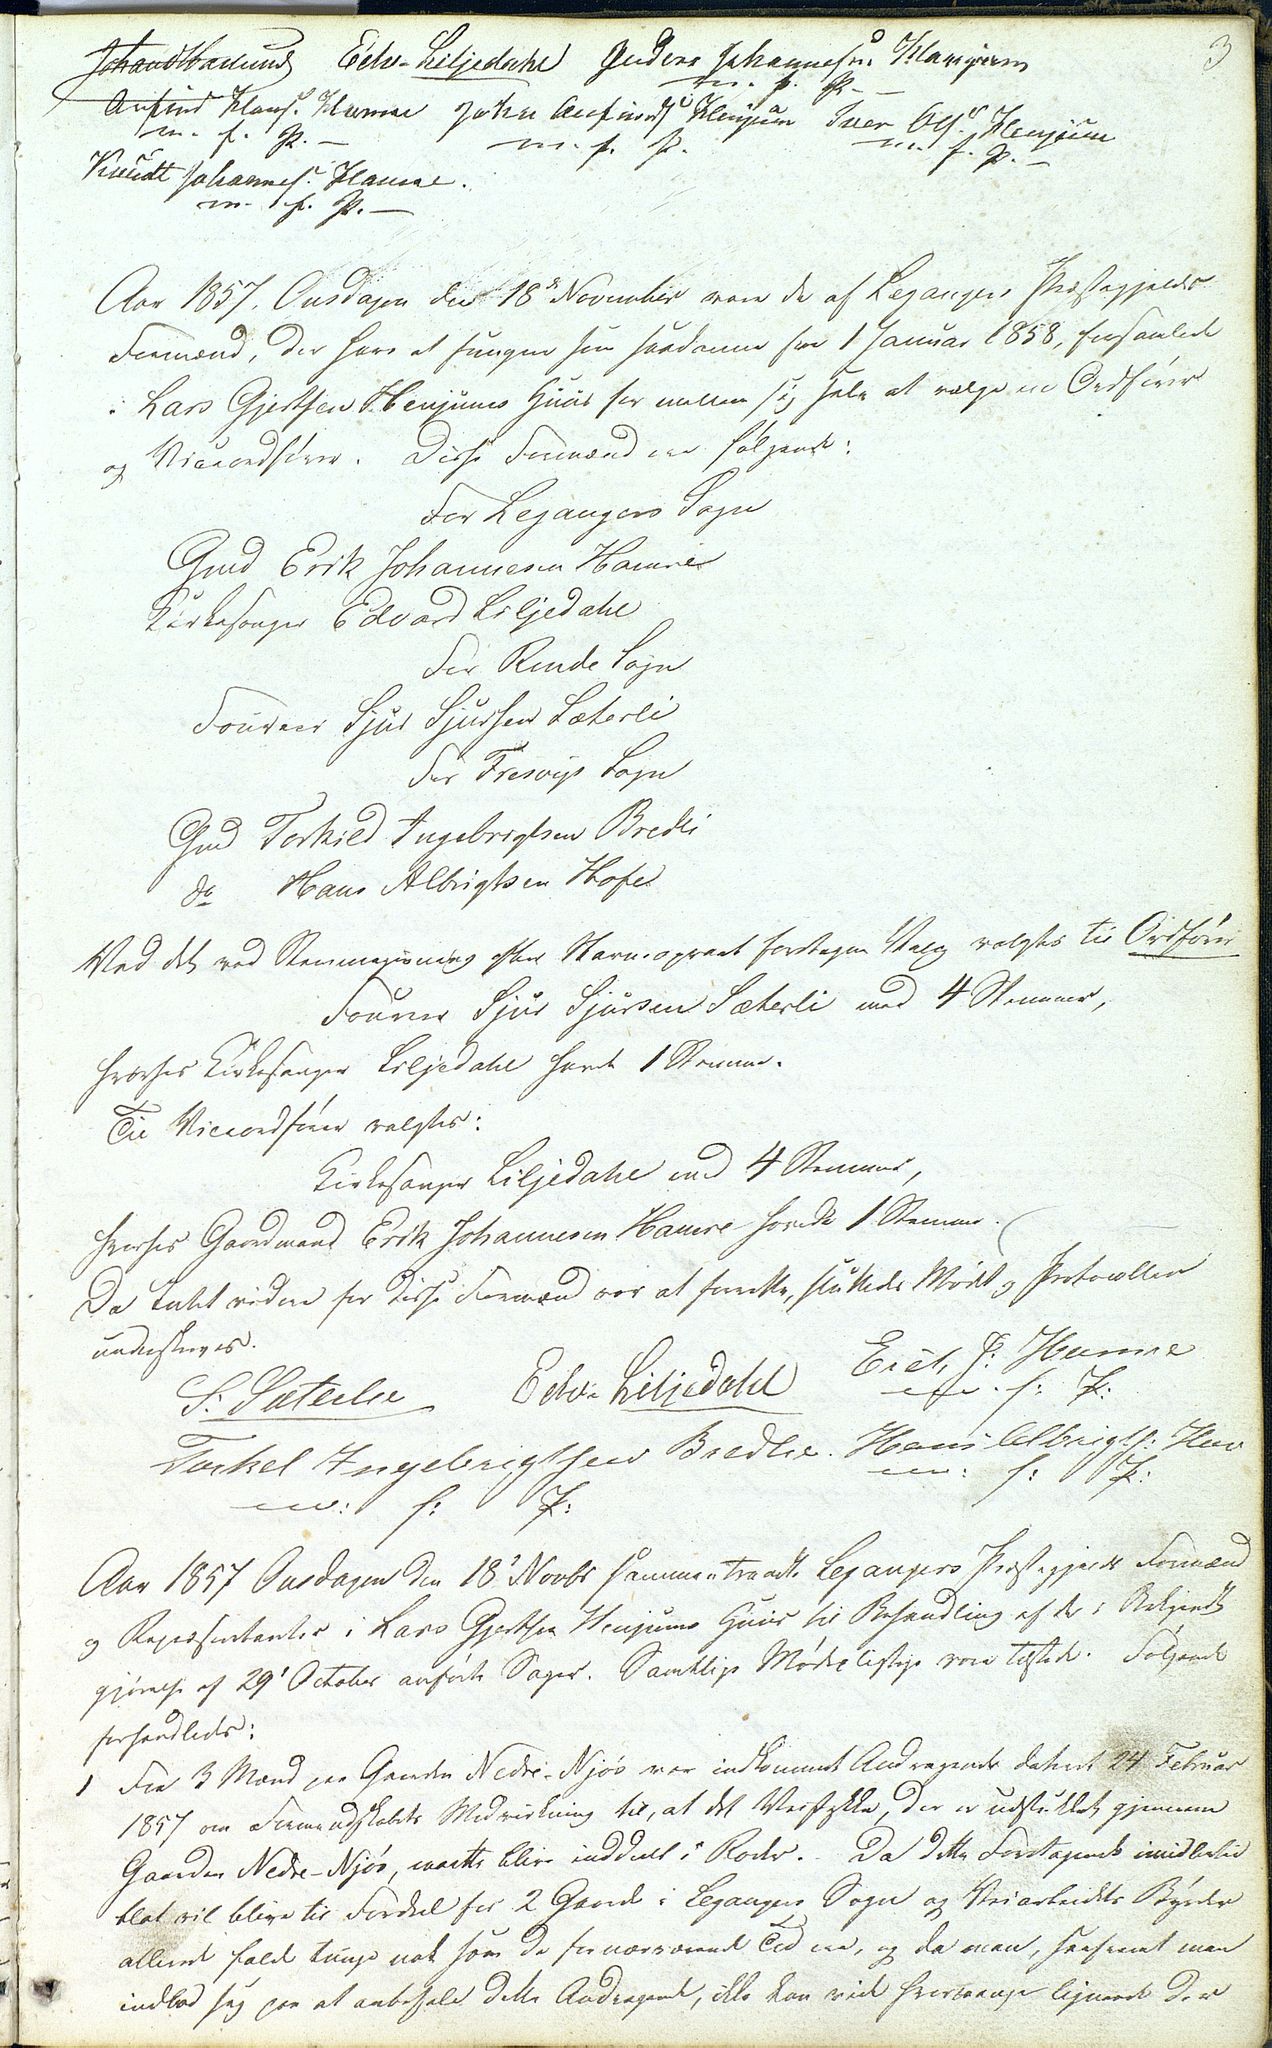 3
Edv. Liljedahl Anders Johannesen
m. f. P.
Anfind Hans. Hamre John Anfinds. Henjum Iver Ols. Henjum
m. f. P. m. f. P. m. f. P.
Knudt Johannes. Hamre.
m. f. P.
Aar 1857. Onsdagen den 18de November vare de af Leganger Præstegjelds
Formænd, der have at fungere som saadanne fra 1 Januar 1858, forsamlede
i Lars Gjertsen Henjums Huus for mellem sig selv at vælge en Ordfører
og Viceordfører. Disse Formænd ere følgende:
For Legangers Sogn
Gmd Erik Johannesen Hamre
Kirkesanger Edvard Liljedahl
For Rinde Sogn
Fourer Sjur Sjursen Sæterli
For Fresvigs Sogn
Gmd Torkild Ingebrigtsen Bredli
do Hans Albrigtsen Hofe
Ved det ved Stemmegivning efter Navneopraab foretagne Valg valgtes til Ordfører
Fourer Sjur Sjursen Sæterli med 4 Stemmer,
hvorhos Kirkesanger Liljedahl havde 1 Stemme.
Til Viceordfører valgtes:
Kirkesanger Liljedahl med 4 Stemmer,
hvorhos Gaardmand Erik Johannesen Hamre havde 1 Stemme.
Da Intet videre for disse Formænd var at foretage, sluttedes Mødet og Protocollen
underskreves.
S. Sæterlie Edv. Liljedahl Erik J: Hamre
m. f: P:
Torkel Ingebrigtsen Bredlie. Hans Albrigts: Hov
m: f: P: m: f: P:
Aar 1857 Onsdagen den 18de Novbr sammentraadte Legangers Præstegjelds Formænd
og Repræsentanter i Lars Gjertsen Henjums Huus til Behandling af de i Bekjendt-
gjørelse af 29de October anførte Sager. Samtlige Mødepligtige vare tilstede. Følgende
forhandledes:
1 Fra 3 Mænd paa Gaarden Nedre-Njøs var indkommet Andragende dateret 24 Februar
1857 om Formandskabets Medvirkning til, at det Veistykke, der er udstukket gjennem
Gaarden Nedre-Njøs, maatte blive inddeelt i Roder. Da dette Foretagende imidlertid
blot vil blive til Fordeel for 2 Gaarde i Legangers Sogn og Veiarbeidets Byrder
allerede falde tunge nok som de for nærværende Tid ere, og da man, saafremt man
indlod sig paa at anbefale dette Andragende, ikke kan vide hvormange lignende der